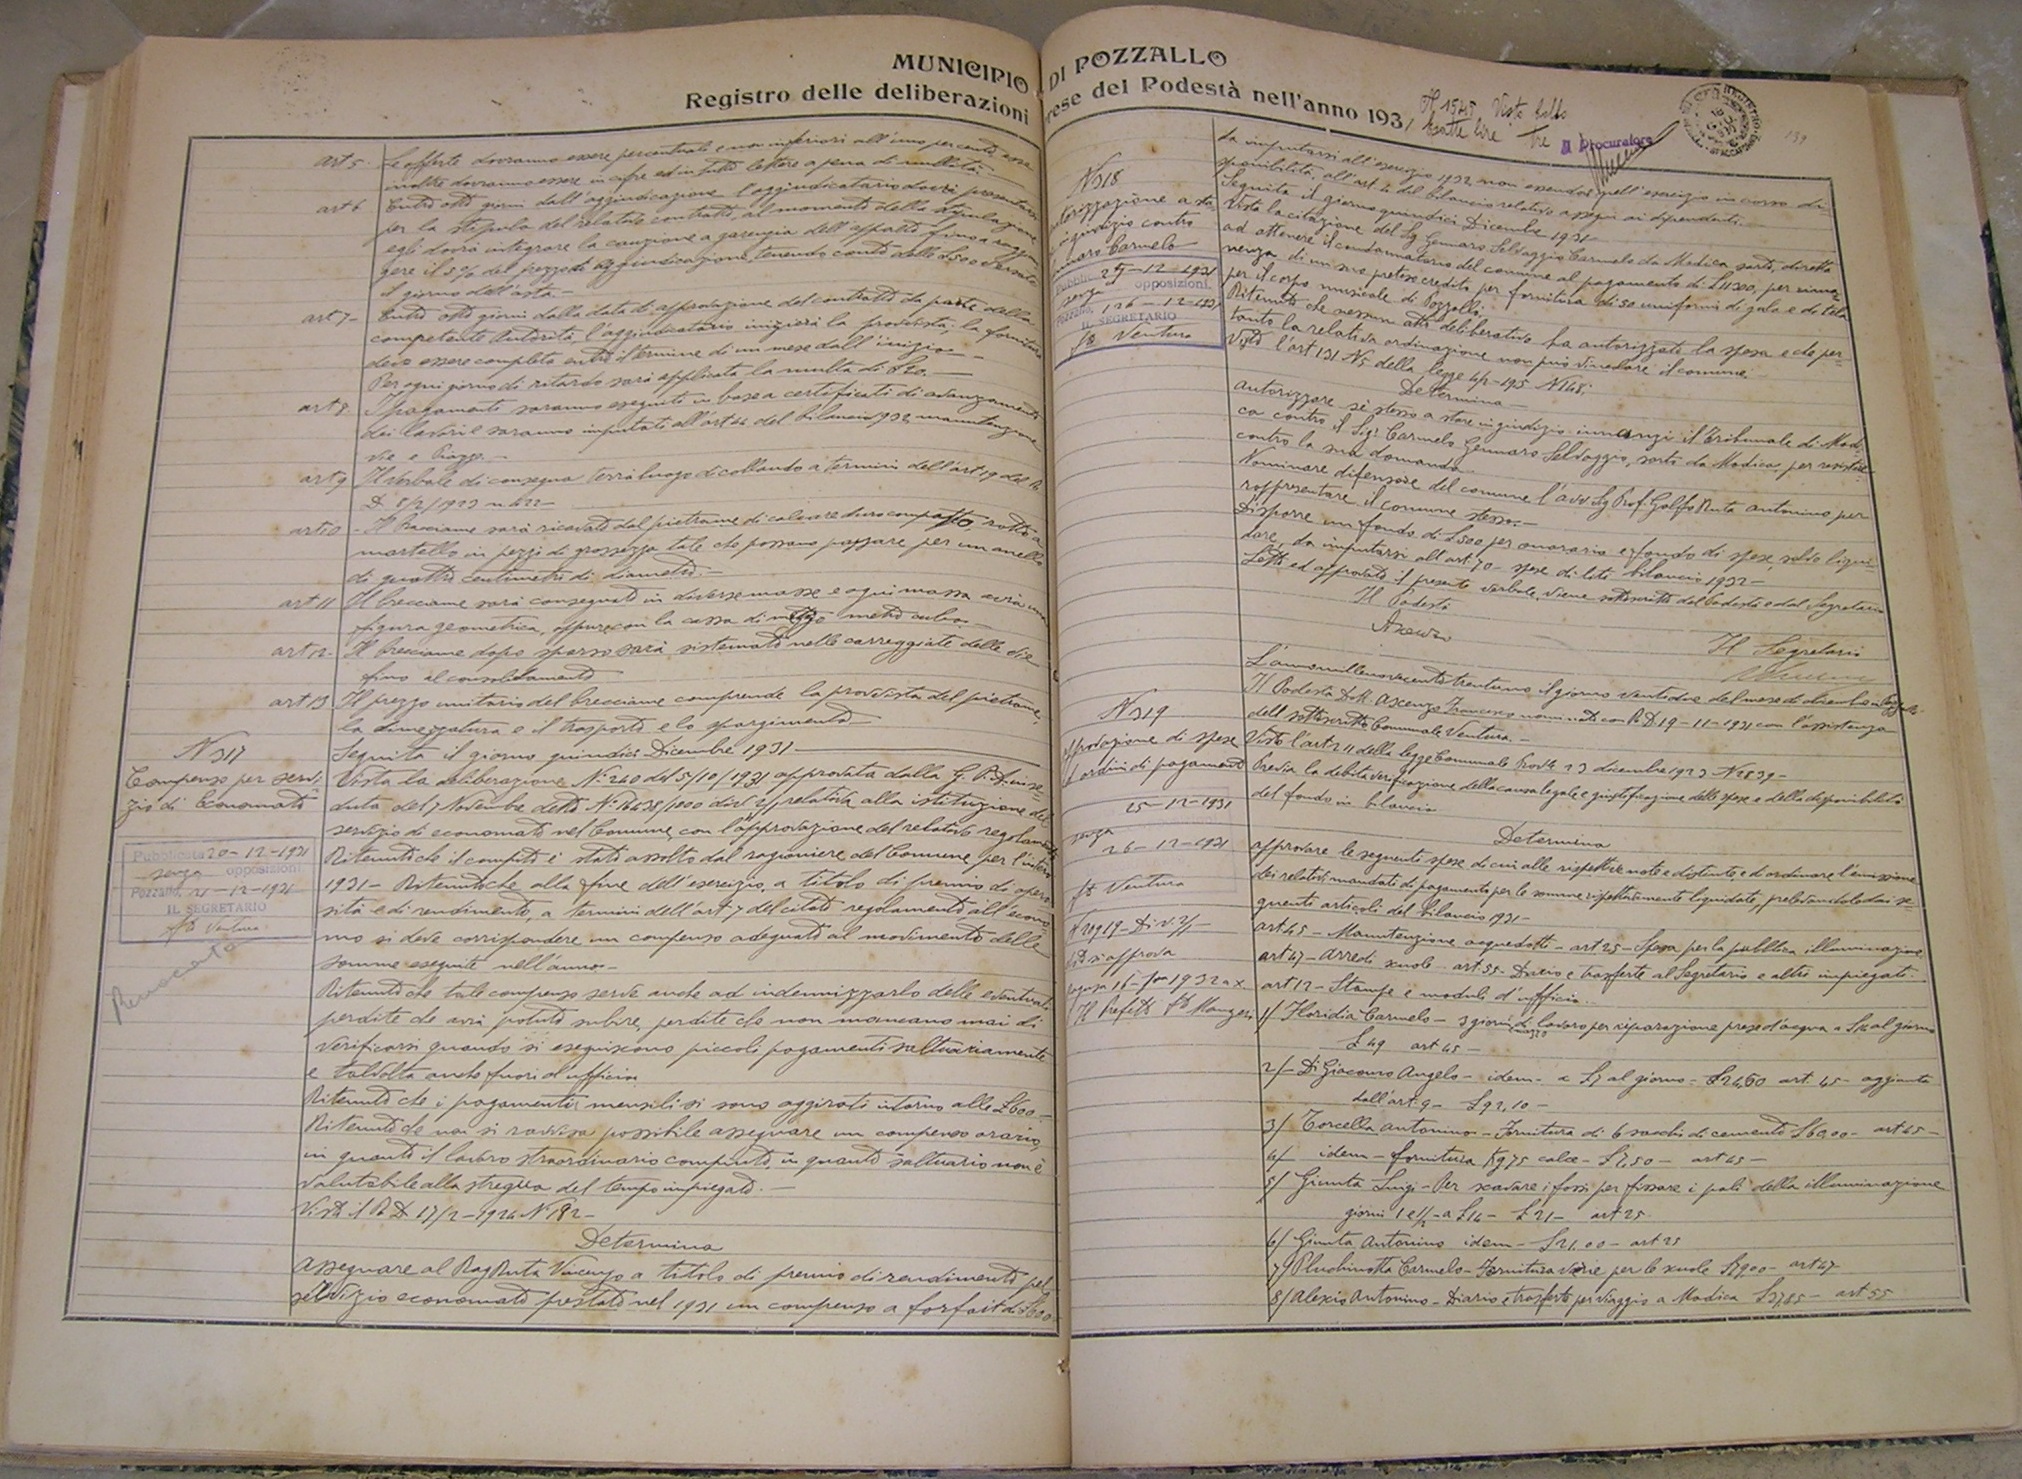 MUNICIPIO DI POZZALLO
Registro delle deliberazioni prese del Podestà nell'anno 1931
art 5- Le offerte dovranno essere percentuali e non inferiori all'uno per cento, esse
inoltre dovranno essere in cifre ed in tutte lettere a pena di nullità.
art 6 Entro otto giorni dall'aggiudicazione l'aggiudicatario dovrà presentarsi
per la stipula del relativo contratto, al momento della stipulazione
egli dovrà integrare la cauzione a garenzia dell'appalto fino a raggiun
gere il 5% del prezzo di aggiudicazione, tenendo conto delle £500 versate
il giorno dell'asta.-
art 7- Entro otto giorni dalla data di approvazione del contratto da parte della
competente Autorità l'aggiudicatario inizierà la provvista, la fornitura
deve essere completa entro il termine di un mese dall'inizio-
Per ogni giorno di ritardo sarà applicata la multa di £20.-
art 8- I pagamenti saranno eseguiti in base a certificati di avanzamento
dei lavori e saranno imputati all'art 44 del bilancio 1932 manutenzione
vie e Piazze.-
art 9 Il verbale di consegna terrà luogo di collaudo a termini dell'art 19 del R.
D 8/2/1923 n 422-
art 10 - Il brecciame sarà ricavato dal pietrame di calcare duro compatto rotto a
martello in pezzi di grossezza tale che possano passare per un anello
di quattro centimetri di diametro.-
art 11 Il brecciame sarà consegnato in diverse masse e ogni massa avrà una
figura geometrica, oppure con la cassa di mezzo metro cubo-
art 12- Il brecciame dopo sparso sarà sistemato nelle carreggiate delle vie
fino al consolidamento
art 13 Il prezzo unitario del brecciame comprende la provvista del pietrame,
la dimezzatura e il trasporto e lo spargimento-
N 317
Compenso per servi-
zio di Economato
Pubblicata 20-12-1931
senza opposizioni
Pozzallo, 21-12-1931
IL SEGRETARIO
fto Ventura
Revocata
Seguita il giorno quindici Dicembre 1931-
Vista la deliberazione N° 240 del 5/10/1931 approvata dalla G. P. A. in se-
duta del 7 Novembre detto relativa alla istituzione del
servizio di economato nel Comune, con l'approvazione del relativo regolamento
Ritenuto che il compito è stato assolto dal ragioniere del Comune per l'intero
1931- Ritenuto che alla fine dell'esercizio, a titolo di premio di opero
sità e di rendimento, a termini dell'art 7 del citato regolamento all'econo
mo si deve corrispondere un compenso adeguato al movimento delle
somme eseguite nell'anno-
Ritenuto che tale compenso serve anche ad indennizzarlo delle eventuali
perdite che avrà potuto subire, perdite che non mancano mai di
verificarsi quando si eseguiscono piccoli pagamenti saltuariamente
e talvolta anche fuori d'ufficio
Ritenuto che i pagamenti mensili si sono aggirati intorno alle £600-
Ritenuto che non si ravvisa possibile assegnare un compenso orario,
in quanto il lavoro straordinario compiuto in quanto saltuario non è
valutabile alla stregua del tempo impiegato.-
Visto il R D 17/2-1924 N 182-
Determina
assegnare al Rag Ruta Vincenzo a titolo di premio di rendimento pel
servizio economato prestato nel 1931 un compenso a forfait di £600
N 1545 Visto bollo
Esatte lire Tre
Il Procuratore
139
da imputarsi all'esercizio 1932 non essendovi nell'esercizio in corso di-
sponibilità, all'art 4 del bilancio relativo assegni ai dipendenti.-
N 318
autorizzazione a sta-
re in giudizio contro
Gennaro Carmelo
Pubblic. 25-12-1931
senza opposizioni.
Pozzallo, 26-12-1931
IL SEGRETARIO
fto Ventura
Seguita il giorno quindici Dicembre 1931-
Vista la citazione del Sig Gennaro Selvaggio Carmelo da Modica sarto, diretta
ad ottenere il condannatorio del comune al pagamento di £11300, per rima-
nenza di un suo preteso credito per fornitura di 50 uniformi di gala e di tela
per il corpo musicale di Pozzallo.
Ritenuto che nessun atto deliberativo ha autorizzato la spesa e che per-
tanto la relativa ordinazione non può vincolare il comune.
Visto l'art 131 N 5 della legge 4/2-1915 N 148;
Determina
Autorizzare sè stesso a stare in giudizio innanzi il Tribunale di Modi-
ca contro il Sig: Carmelo Gennaro Selvaggio, sarto da Modica, per resistere
contro la sua domanda.
Nominare difensore del comune l'avv Sig Prof. Galfo Ruta Antonino per
rappresentare il comune stesso.-
Disporre un fondo di £500 per onorario e fondo di spese, salvo liqui-
dare, da imputarsi all'art. 70- spese di liti bilancio 1932-
Letto ed approvato il presente verbale, viene sottoscritto dal Podestà e dal Segretario
Il Podestà
Il Segretario
N 319
approvazione di spese
ed ordini di pagamento
25-12-1931
senza
26-12-1931
fto Ventura
si approva
Ragusa 16-1-1932 a X
Il Prefetto
L'anno millenovecentotrentuno il giorno ventidue del mese di dicembre in Pozzallo
Il Podestà Dott Ascenzo Francesco nominato con R D. 19-11-1931 con l'assistenza
del sottoscritto Comunale Ventura.-
Visto l'art 211 della legge Comunale Prov 23 dicembre 1923 N 2839-
Previa la debita verificazione della causa legale e giustificazione delle spese e della disponibilità
del fondo in bilancio
Determina
approvare le seguenti spese di cui alle rispettive note e distinte e di ordinare l'emissione
dei relativi mandati di pagamento per le somme rispettivamente liquidate, prelevandole dai se-
guenti articoli del bilancio 1931-
art 45- Manutenzione acquedotti- art 25- Spesa per la pubblica illuminazione
art 47- arredi scuole- art 55- Diarie e trasferte al Segretario e altri impiegati-
art 12- Stampe e moduli d'ufficio.-
1/ Floridia Carmelo- 3 giorni e mezzo di lavoro per riparazione prese d'acqua a £14 al giorno
£49 art 45-
2/- Di Giacomo Angelo- idem- a £7 al giorno- £24,50 art. 45- aggiunta
dall'art. 9- £92,10-
3/ Torcella Antonino- Fornitura di 6 sacchi di cemento £60,00- art 45-
4/ idem- fornitura Kg 75 calce- £7,50- art 45-
5/ Giunta Luigi- Per scavare i fossi per fissare i pali della illuminazione
giorni 1 e 1/2- a £14- £21- art 25
6/ Giunta Antonino idem- £21,00- art 25
7/ Pluchinotta Carmelo- Fornitura varie per le scuole £79,00- art 47
8/ Alescio Antonino- Diario e trasferte per viaggio a Modica £37,85- art 55